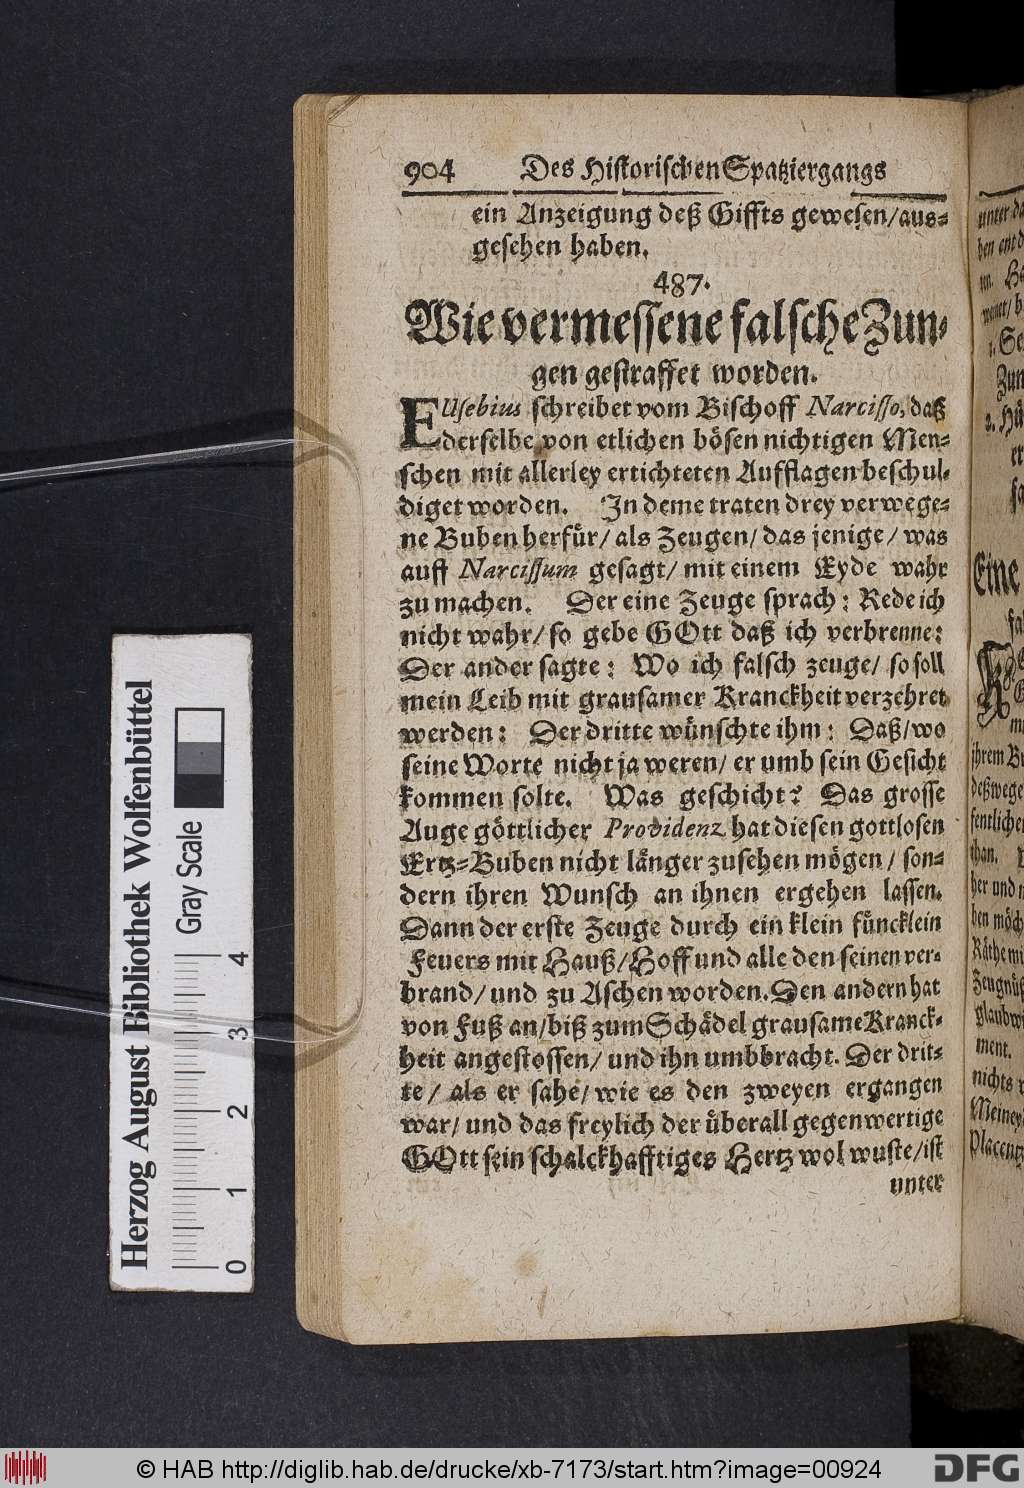 904 Des Historischen Spatziergangs
ein Anzeigung deß Giffts gewesen/aus-
gesehen haben.
487.
Wie vermessene falsche Zun-
gen gestraffet worden.
EUsebius schreibet vom Bischoff Narcisso, daß
derselbe von etlichen bösen nichtigen Men-
schen mit allerley ertichteten Aufflagen beschul-
diget worden. In deme traten drey verwege-
ne Buben herfür/ als Zeugen/ das jenige/ was
auff Narcissum gesagt/ mit einem Eyde wahr
zu machen. Der eine Zeuge sprach: Rede ich
nicht wahr/ so gebe GOtt daß ich verbrenne:
Der ander sagte: Wo ich falsch zeuge/ so soll
mein Leib mit grausamer Kranckheit verzehret
werden: Der dritte wünschte ihm: Daß/wo
seine Worte nicht ja weren/ er umb sein Gesicht
kommen solte. Was geschicht? Das grosse
Auge göttlicher Providenz hat diesen gottlosen
Ertz-Buben nicht länger zusehen mögen/ son-
dern ihren Wunsch an ihnen ergehen lassen.
Dann der erste Zeuge durch ein klein füncklein
Feuers mit Hauß/Hoff und alle den seinen ver-
brand/ und zu Aschen worden. Den andern hat
von Fuß an/biß zum Schädel grausame Kranck-
heit angestossen/ und ihn umbbracht. Der drit-
te/ als er sahe/ wie es den zweyen ergangen
war/ und das freylich der überall gegenwertige
GOtt sein schalckhafftiges Hertz wol wuste/ist
unter
Herzog August Bibliothek Wolfenbüttel
Gray Scale
0 1 2 3 4
© HAB http://diglib.hab.de/drucke/xb-7173/start.htm?image=00924
DFG